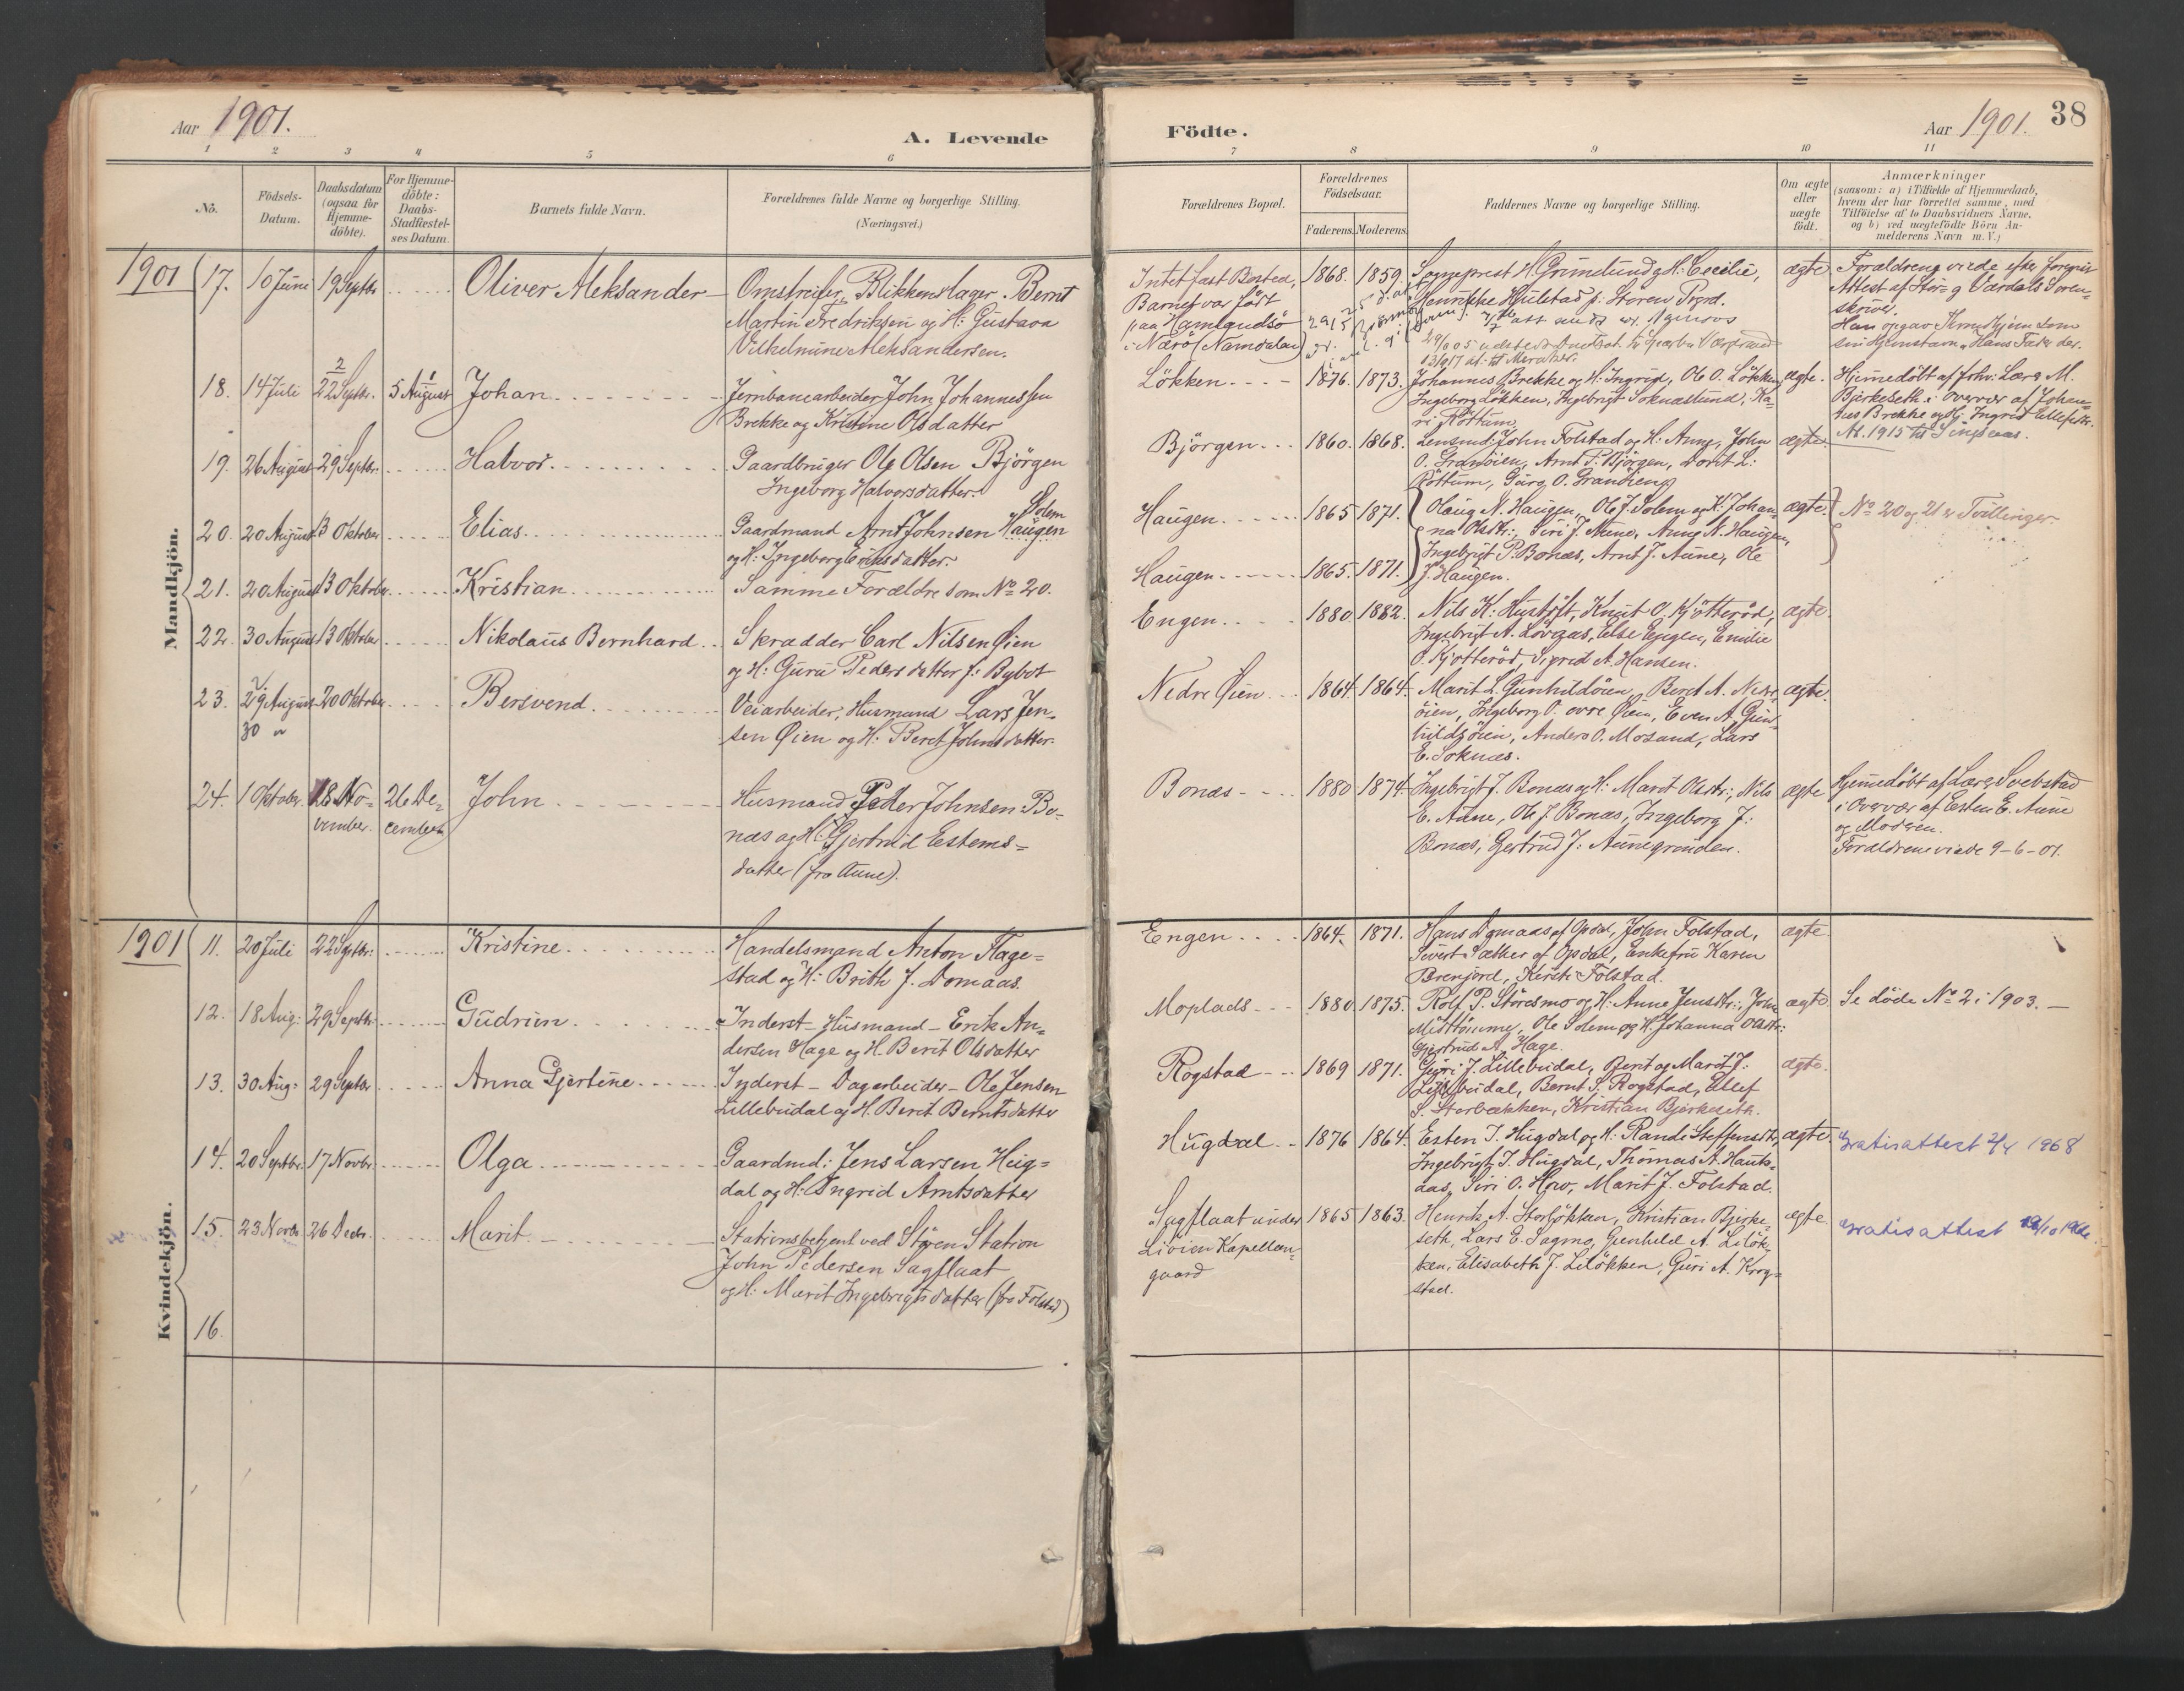 Aar 1901.
A. Levende
Födte.
Aar 1901. 38
1 2 3 4 5 6
7 8 9 10 11
No.
Födsels-
Datum.
Daabsdatum
(ogsaa for
Hjemme-
döbte).
For Hjemme-
döbte:
Daabs-
Stadfæstel-
ses Datum.
Barnets fulde Navn.
Forældrenes fulde Navne og borgerlige Stilling.
(Næringsvei.)
Forældrenes Bopæl.
Forældrenes
Födselsaar.
Faderens. Moderens.
Faddernes Navne og borgerlige Stilling.
Om ægte
eller
uægte
födt.
Anmærkninger
(saasom: a) i Tilfælde af Hjemmedaab,
hvem der har forrettet samme, med
Tilföielse af to Daabsvidners Navne,
og b) ved uægtefödte Börn An-
melderens Navn m.V.)
Mandkjön.
1901
17. 10 Juni 19 Septbr Oliver Aleksander
Omstreifer, Blikkenslager. Bernt
Martin Fredriksen og H: Gustava
Vilhelmine Aleksandersen.
Intet fast Bosted,
Barnet var født
paa
i Nærö (Namdalen)
1868. 1859.
Sogneprest H. Grimelund og H: Cecilie,
ægte.
Forældrene viede efter
Attest af Stör- og Værdals Soren-
skriver.
18. 14 Juli 22 Septbr. 5 August Johan
Jernbanearbeider John Johannessen
Brekke og Kristine Olsdatter
Lökken
1876. 1873.
Johannes Brekke og H: Ingrid, Ole O. Lökken,
Ingeborg Lökken, Ingebrigt Soknæslund, Ka-
ri Röttum.
ægte.
Hjemedöbt af forhv: Lærer M.
Bjerkeseth i Overvær af Johan-
nes Brekke og Hj. Ingrid
At. 1915 til Singsaas.
19. 26 August 29 Septbr. Halvor
Gaardbruger Ole Olsen Björgen
Ingeborg Halvorsdatter.
Björgen
1860. 1868.
Lensmd: John Folstad og H: Anne, John
O. Granöien, Arnt P. Björgen, Dordi L:
Röttum, Guro O. Granöieng
ægte.
20. 20 August 13 Oktober Elias
Solem
Gaardmand Arnt Johnsen Haugen
og H. Ingeborg Eriksdatter.
Haugen
1865 1871.
Olaug A. Haugen, Ole J. Solem og H. Johan-
na Olsdtr:, Siri J. Aune, Anne A. Haugen,
Ingebrigt P. Bonæs, Arnt J. Aune, Ole
J. Haugen.
ægte.
No 20 og 21 er Tvillinger.
21. 20 August 13 Oktober Kristian
Samme Forældre som No 20.
Haugen
1865. 1871.
22. 30 August 13 Oktober Nikolaus Bernhard
Skrædder Carl Nilsen Øien
og H: Guru Pedersdatter f: Bybot
Engen
1880. 1882.
Nils K. Hustöft, Knut O. Kjötteröd,
Ingebrigt A. Lövaas, Else Engen, Emilie
O. Kjötteröd, Sigrid A. Hansen.
ægte.
23. 29 August 20 Oktober Bersvend
30
Veiarbeider, Husmand Lars Jen-
sen Øien og H: Beret Johnsdatter.
Nedre Øien
1864. 1864.
Marit L. Gunhildöien, Beret A. Nedre-
öien, Ingeborg O. övre Øien, Even A. Gun-
hildsöien, Anders O. Mosand, Lars
E. Soknæs.
ægte.
24. 1 Oktober 18 No-
vember. 26 De-
cember John
Husmand Peder Johnsen Bo-
næs og H: Gjertrud Estens-
datter (fra Aune).
Bonæs
1880 1874.
Ingebrigt J. Bonæs og H: Marit Olsdtr:, Nils
E. Aune, Ole J. Bonæs, Ingeborg J:
Bonæs, Gjertrud J: Aunegrinden.
ægte
Hjemedöbt af Lærer Svebstad
i Overvær af Esten E. Aune
og Moderen.
Forældrene viede 9-6-01.
Kvindekjön.
1901
11. 20 Juli 22 Septbr: Kristine
Handelsmand Anton Flage-
stad og H: Brith J. Domaas.
Engen
1864. 1871.
Hans Domaas af Opdal, John Folstad,
Sivert Sæther af Opdal, Enkefru Karen
Brenjord, Kirsti Folstad.
ægte.
12. 18 Aug: 29 Septbr: Gudrun
Inderst - Husmand - Erik An-
dersen Hage og H. Berit Olsdatter
Moplads
1880. 1875.
Rolf P. Störesmo og H: Anne Jensdtr:, John
Midttömme, Ole Solem og H. Johanna Olsdtr:
Gjertrud A. Hage.
ægte.
Se döde No 2 i 1903.
13. 30 Aug: 29 Septbr Anna Gjertine
Inderst - Dagarbeider - Ole Jensen
Lillebudal og H. Berit Berntsdatter
Rogstad
1869 1871.
Guri J. Lillebudal, Berit og Marit J:
Lillebudal, Bernt S. Rogstad, Ellef
S. Storbækken, Kristian Bjerkeseth.
ægte.
14. 20 Septbr: 17 Novbr. Olga
Gaardmd: Jens Larsen Hug-
dal og H: Ingrid Arntsdatter
Hugdal
1876 1864.
Esten J. Hugdal og H: Randi Steffensdtr,
Ingebrigt J. Hugdal, Thomas A. Hauk-
aas, Siri O. Hov, Marit J. Folstad.
ægte.
Gratisattest 2/4 1968
15. 23 Novbr 26 Decbr. Marit
Stationsbetjent ved Stören Station
John Pedersen Sagflaat
og H: Marit Ingebrigtsdatter (fra Folstad)
Sagflaat under
Liöien Kapellan-
gaard
1865 1863.
Henrik A. Storlökken, Kristian Bjerke-
seth, Lars E. Sagmo, Gunhild A. Lilök-
ken, Elisabeth J. Lilökken, Guri A. Krog-
stad.
ægte.
Gratisattest
16.